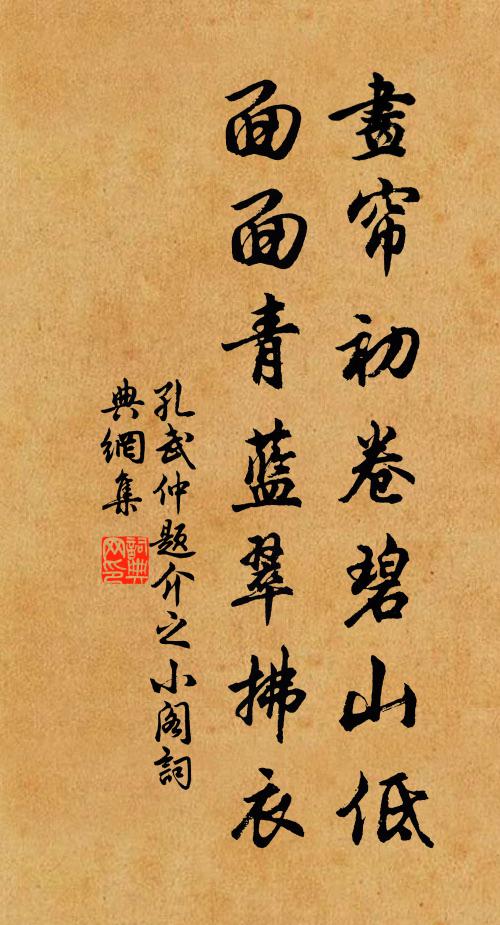 畫帘初卷碧山低
面面青藍翠拂衣
孔武仲題介之小阁詞
典網集
詞典网印